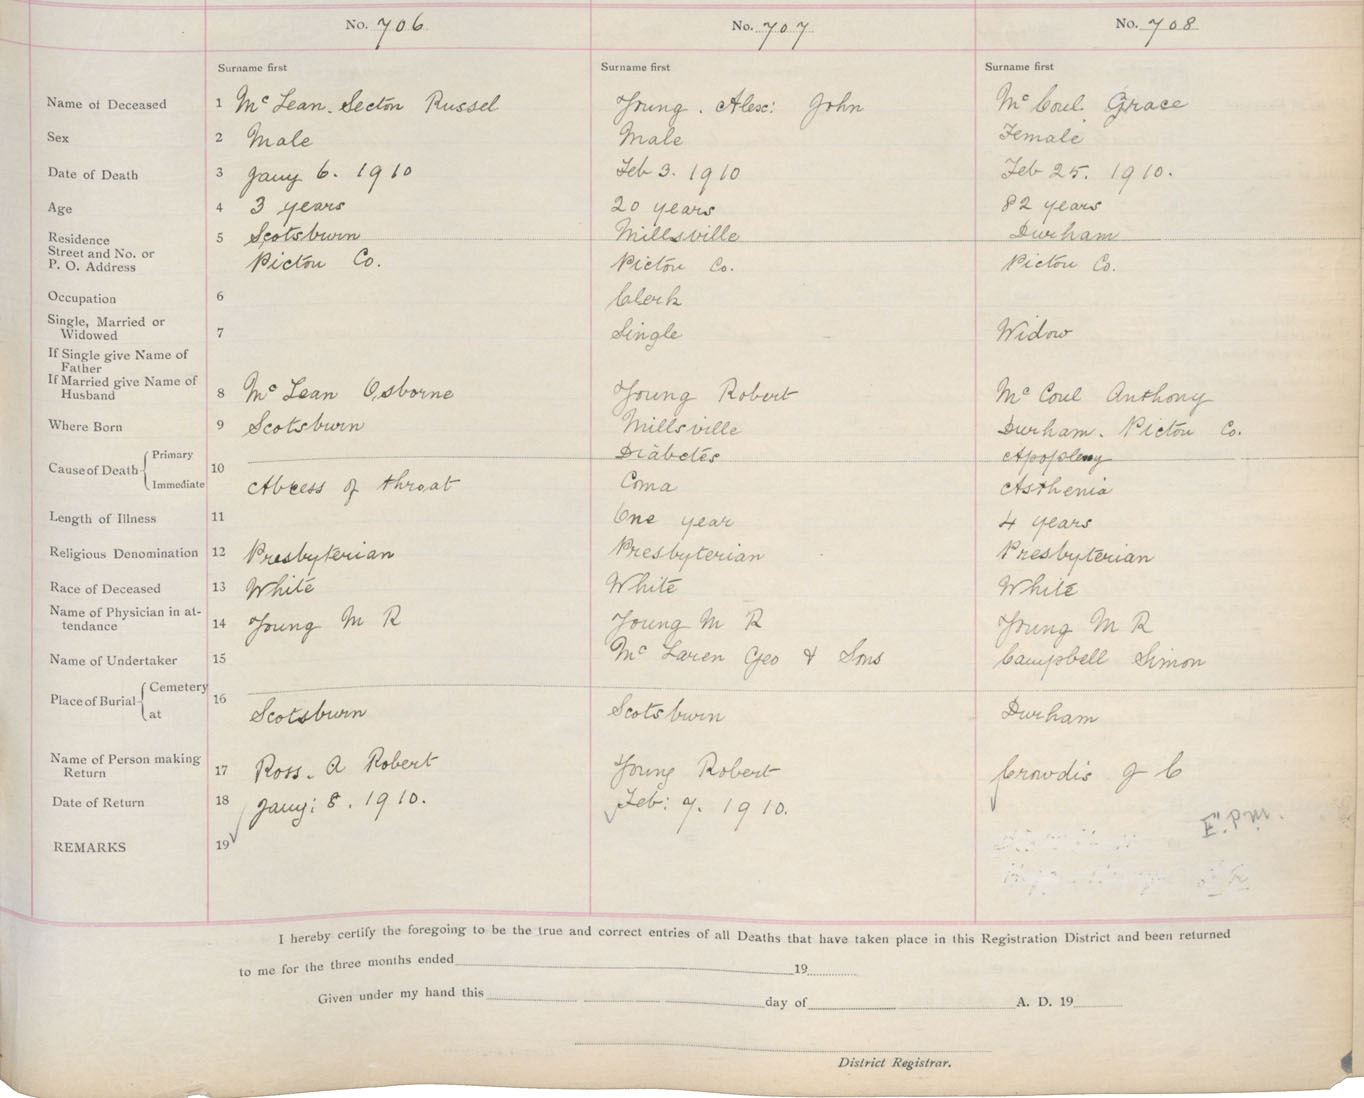 No. 706 No. 707 No. 708
Surname first Surname first Surname first
Name of Deceased 1 Mc Lean. Secton Russel Young. Alex: John Mc Coul. Grace
Sex 2 Male Male Female
Date of Death 3 Jany 6. 1910 Feb 3. 1910 Feb 25. 1910.
Age 4 3 years 20 years 82 years
Residence 5 Scotsburn Millsville Durham
Street and No. or
P. O. Address Pictou Co. Pictou Co. Pictou Co.
Occupation 6 Clerk
Single, Married or
Widowed 7 Single Widow
If Single give Name of
Father
If Married give Name of
Husband 8 Mc Lean Osborne Young Robert Mc Coul Anthony
Where Born 9 Scotsburn Millsville Durham. Pictou Co.
Cause of Death Primary 10 Diabetes Apoplexy
Immediate Abcess of throat Coma Asthenia
Length of Illness 11 One year 4 years
Religious Denomination 12 Presbyterian Presbyterian Presbyterian
Race of Deceased 13 White White White
Name of Physician in at-
tendance 14 Young M R Young M R Young M R
Name of Undertaker 15 Mc Laren Geo & Sons Campbell Simon
Place of Burial Cemetery 16
at Scotsburn Scotsburn Durham
Name of Person making
Return 17 Ross. A Robert Young Robert Crowdis J C
Date of Return 18 Jany: 8. 1910. Feb: 7. 1910.
E. P. M.
REMARKS 19
I hereby certify the foregoing to be the true and correct entries of all Deaths that have taken place in this Registration District and been returned
to me for the three months ended 19
Given under my hand this day of A. D. 19
District Registrar.